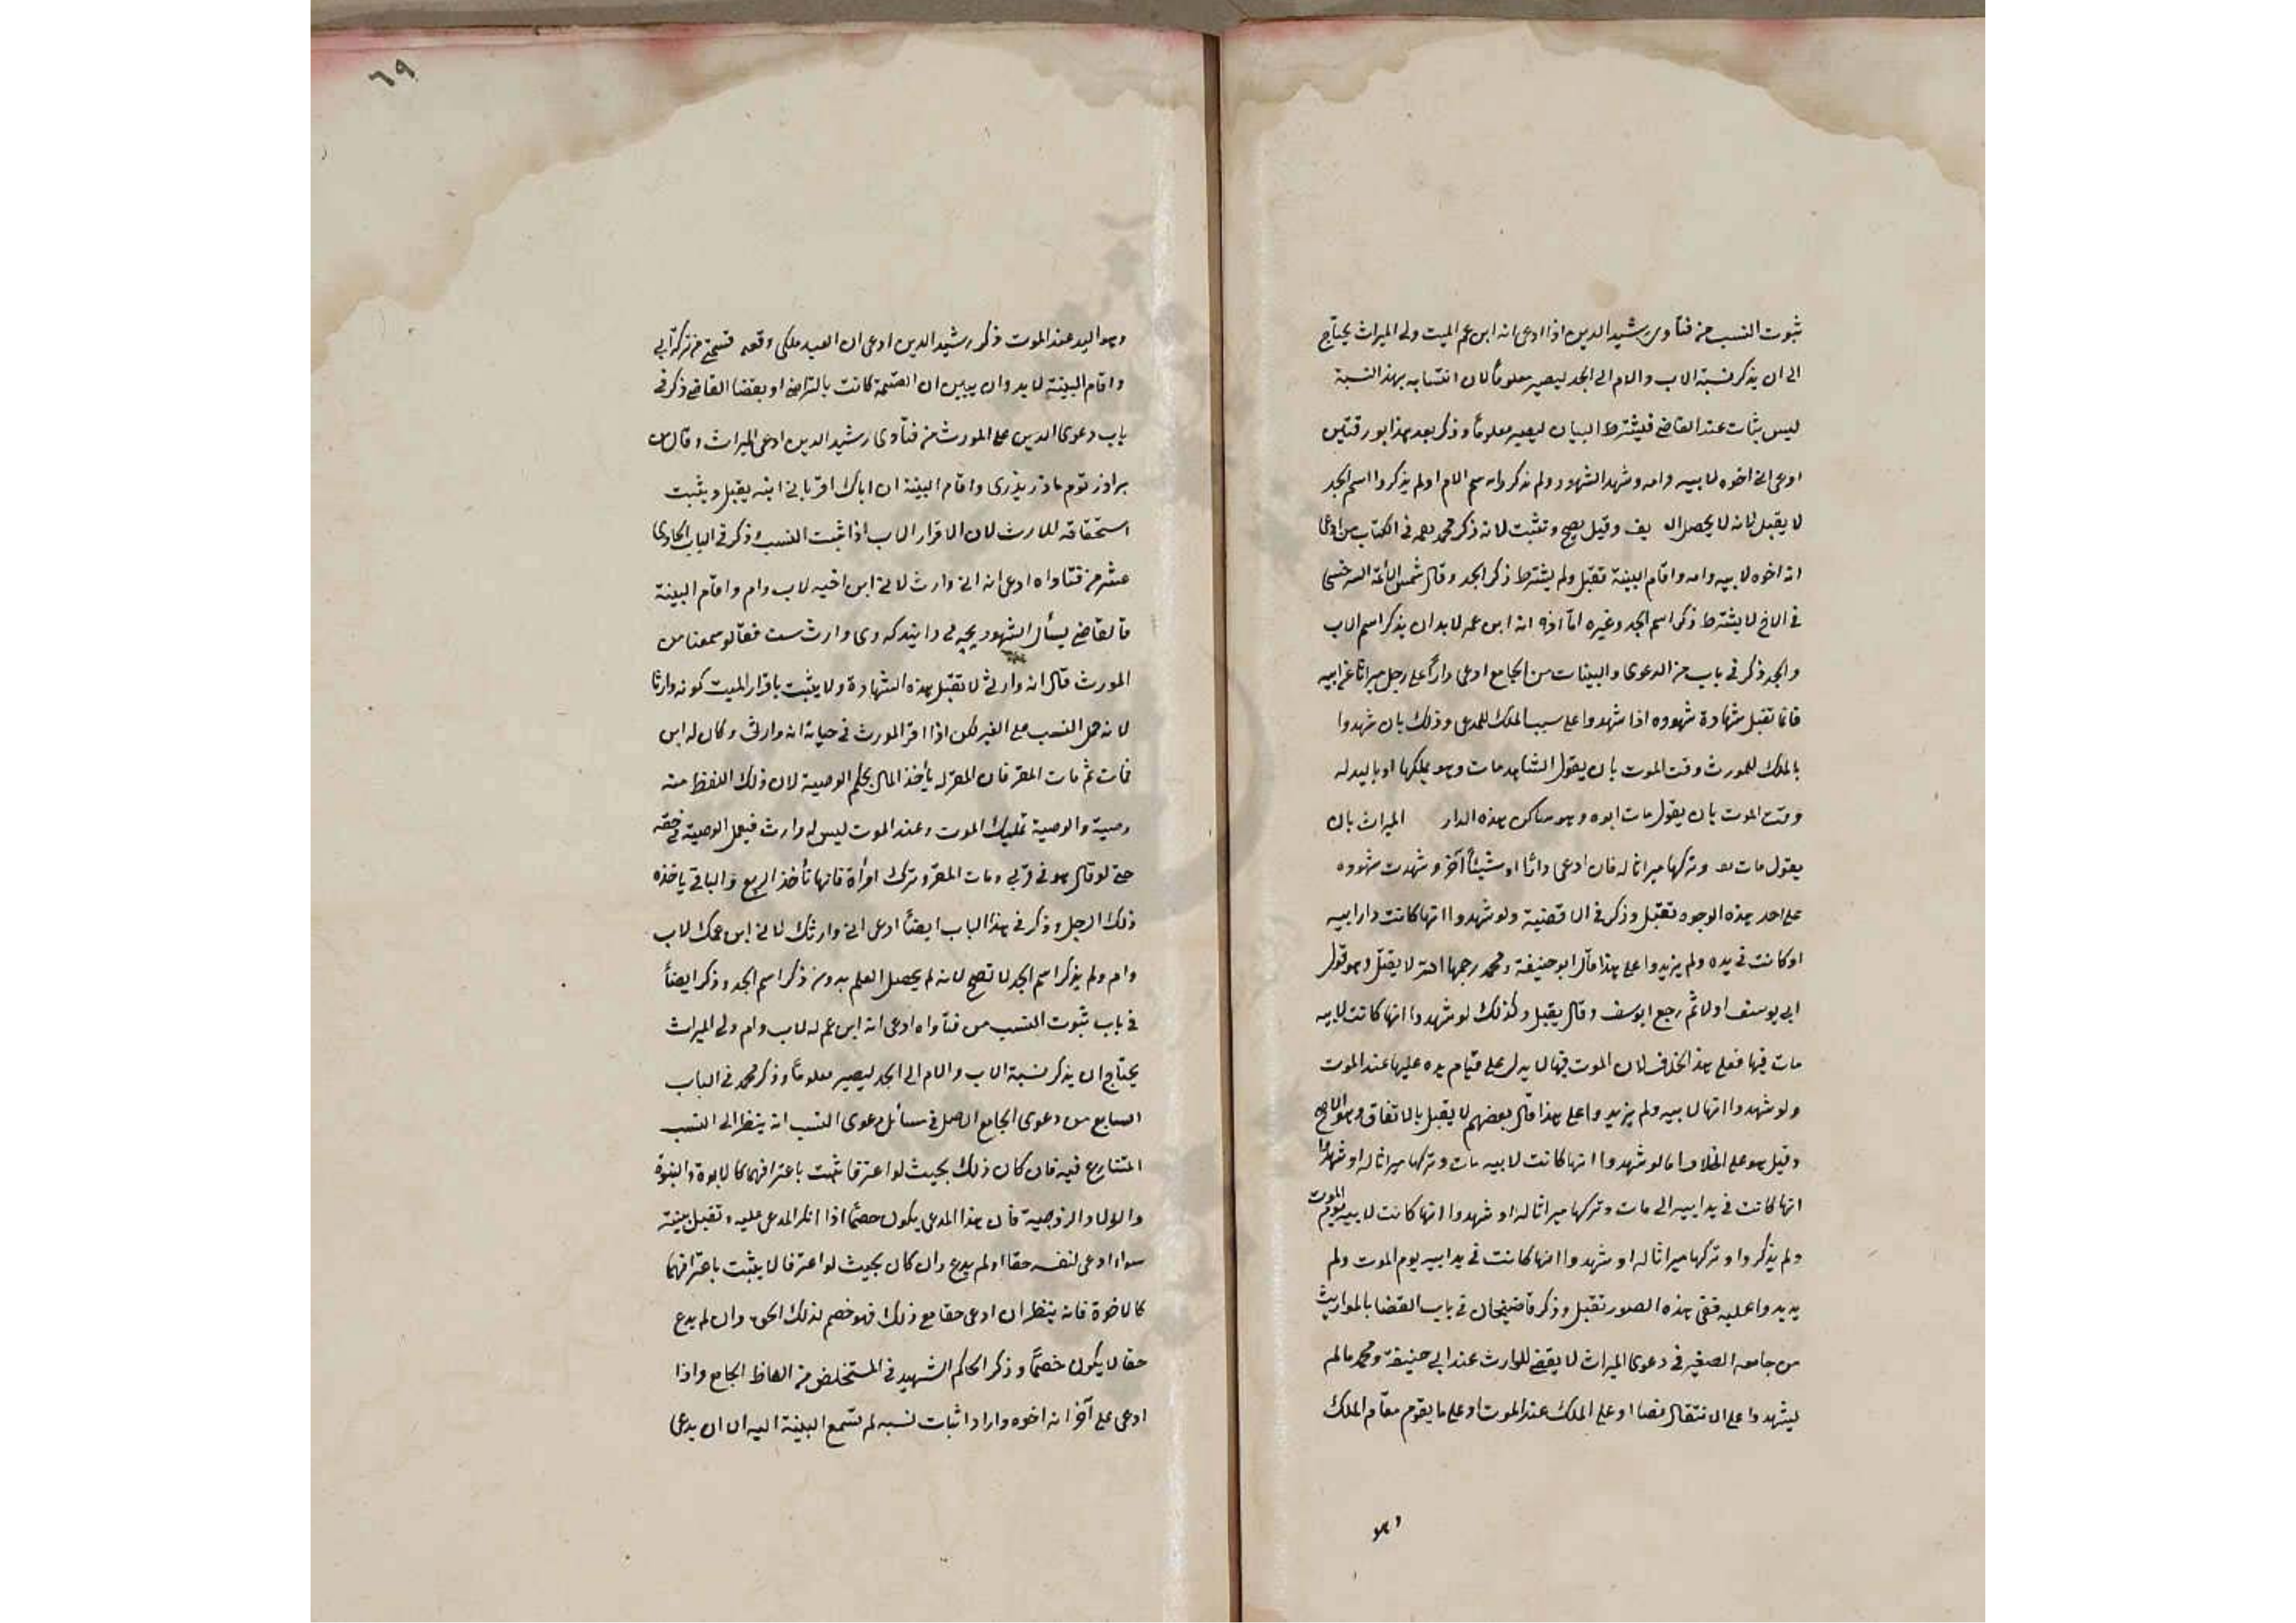 ثبوت النسب من فتاوى رشيد الدين اذا ادعى انه ابن عم الميت ولى الميراث يحتاج
الى ان يذكر نسبة الاب والام الى الجد ليصير معلوماً لان انتسابه بهذ النسبة
ليس بثابت عند القاضى فيشترط البيان ليصير معلوماً وذكر بعد هذا بورقتين
ادعى انى اخوه لابيه وامه وشهد الشهود ولم يذكروا اسم الام او لم يذكروا اسم الجد
لا يقبل لانه لا يحصل ال يف وقيل يصح وتثبت لانه ذكر محمد رحمه فى الكتاب من ادعى
انه اخوه لابيه وامه واقام البينة تقبل ولم يشترط ذكر الجد وقال شمس الائمة السرخسى
فى الاخ لا يشترط ذكر اسم الجد وغيره اما انه ابن عمه لابد ان يذكر اسم الاب
والجد ذكر فى باب من الدعوى والبينات من الجامع ادعى داراً على رجل ميراثا عن ابيه
فانما تقبل شهادة شهوده اذا شهدوا على سبب الملك للمدعى وذلك بان شهدوا
بالملك للمورث وقت الموت بان يقول الشاهد مات وهو يملكها او باليد له
وقت الموت بان يقول مات ابوه وهو ساكن هذه الدار الميراث بان
يقول مات وتركها ميراثا له فان ادعى دارا او شيئاً آخر وشهدت شهوده
على احد هذه الوجوه تقبل وذكر فى الاقضية ولو شهدوا انها كانت دار ابيه
او كانت فى يده ولم يزيدوا على هذا قال ابو حنيفة ومحمد رحمهما الله لا يقبل وهو قول
ابى يوسف اولا ثم رجع ابو يوسف وقال يقبل وكذلك لو شهدوا انها كانت لابيه
مات فيها فعلى هذا الخلاف لان الموت فيها لا يدل على قيام يده عليها عند الموت
ولو شهدوا انها لابيه ولم يزيدوا على هذا قال بعضهم لا يقبل بالاتفاق وهو الاصح
وقيل هو على الخلاف اما لو شهدوا انها كانت لابيه مات وتركها ميراثا له او شهدوا
انها كانت فى يد ابيه الى مات وتركها ميراثا له او شهدوا انها كانت لابيه يوم الموت
ولم يذكروا وتركها ميراثا له او شهدوا انها كانت فى يد ابيه يوم الموت ولم
يديدوا عليه ففى هذه الصور تقبل وذكر قاضيخان فى باب القضا بالمواريث
من جامعه الصغير فى دعوى الميراث لا يقضى للوارث عند ابى حنيفة ومحمد مالم
يشهدوا على الانتقال نصا او على الملك عند الموت او على ما يقوم مقام الملك
وهو
٦٩
وهو اليد عند الموت ذكر رشيد الدين ادعى ان العبد ملكى وقعه قسمتى من تركة ابى
واقام البينة لا بد وان يبين ان القسمة كانت بالتراضى او بقضا القاضى ذكر فى
باب دعوى الدين على المورث من فتاوى رشيد الدين ادعى الميراث وقال من
برادر توم مادر پدرى واقام البينة ان اباك اقر بانى ابنه يقبل ويثبت
استحقاقه للارث لان الاقرار الاب اذا ثبت النسب وذكر فى الباب الحادى
عشر من فتاواه ادعى انه انى وارث لانى ابن اخيه لاب وام واقام البينة
فالقاضى يسأل الشهود بچه مى دانيد كه وى وارث ست فقالو سمعنا من
المورث قال انه وارثى لا تقبل هذه الشهادة ولا يثبت باقرار الميت كونه وارثا
لانه حمل النسب على الغير لكن اذا اقر المورث فى حياته انه وارثى وكان له ابن
فمات ثم مات المقر فان المقر له يأخذ المال بحكم الوصية لان ذلك اللفظ منه
وصية والوصية تمليك الموت وعند الموت ليس له وارث فيعمل الوصية فى حقه
حتى لو قال هو فى قربى ومات المقر وترك امرأة فانها تأخذ الربع والباقى ياخذه
ذلك الرجل وذكر فى هذا الباب ايضاً ادعى انى وارثك لانى ابن عمك لاب
وام ولم يذكر اسم الجد لا تصح لانه لم يحصل العلم بدون ذكر اسم الجد وذكر ايضاً
فى باب ثبوت النسب من فتاواه ادعى انه ابن عم له لاب وام ولى الميراث
يحتاج ان يذكر نسبة الاب والام الى الجد ليصير معلوماً وذكر محمد فى الباب
السابع من دعوى الجامع الاصل فى مسائل دعوى النسب انه ينظر الى النسب
المتنازع فيه فان كان ذلك بحيث لو اعترفا ثبت باعترافهما كالابوة والبنوة
والولاد والزوجية فان هذا المدعى يكون خصماً اذا انكر المدعى عليه وتقبل بينته
سواء ادعى لنفسه حقا او لم يدع وان كان بحيث لو اعترفا لا يثبت باعترافهما
كالاخوة فانه ينظر ان ادعى حقا مع ذلك فهو خصم لذلك الحق وان لم يدع
حقا لا يكون خصماً وذكر الحاكم الشهيد فى المستخلص من الفاظ الجامع واذا
ادعى على آخر انه اخوه واراد اثبات نسبه لم تسمع البينة اليه الا ان يدعى